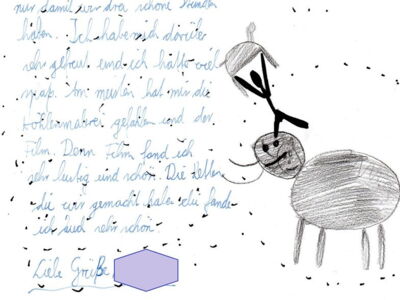 nur damit wir drei schöne Stunden
haben. Ich habe mich darüber
sehr gefreut und ich hatte viel
spaß. Am meisten hat mir die
Höhlenmalerei gefallen und der
Film. Denn Film fand ich
sehr lustig und schön. Die Ketten
die wir gemacht haben die fande
ich auch sehr schön.
Liebe Grüße